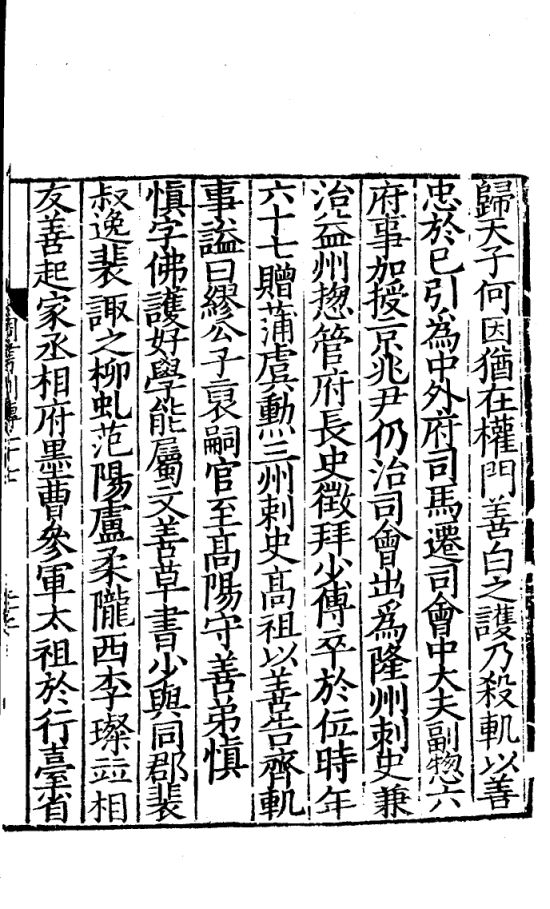 歸天子何因猶在權門善白之護乃殺軌以善
忠於已引爲中外府司馬遷司會中大夫副揔六
府事加授京兆尹仍治司會出爲隆州刺史兼
治益州揔管府長史徵拜少傅卒於位時年
六十七贈蒲虞勲三州刺史高祖以善告齊軌
事謚曰繆公子裒嗣官至高陽守善弟愼
愼字佛護好學能屬文善草書少與同郡裴
叔逸裴諏之柳虬范陽盧柔隴西李璨並相
友善起家丞相府墨曹參軍太祖於行臺省